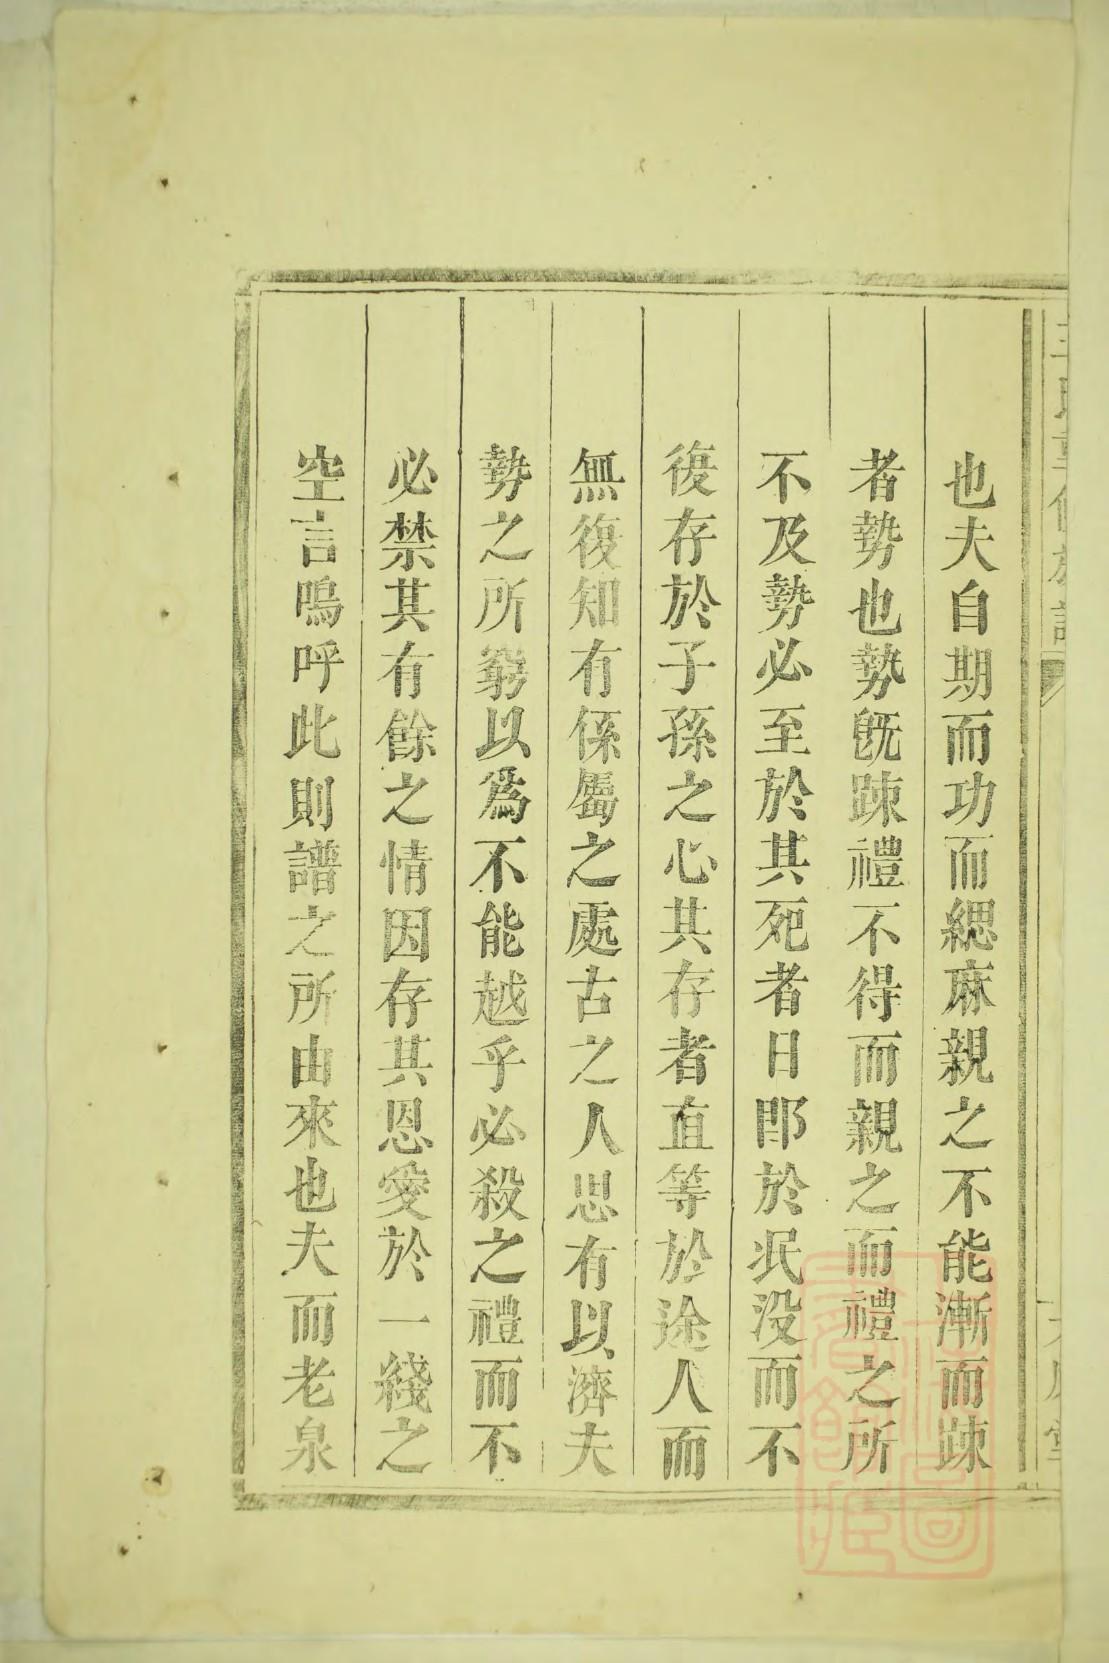 也夫自期而功而緦麻親之不能漸而踈
者勢也勢旣踈禮不得而親之而禮之所
不及勢必至於其死者日卽於泯没而不
復存於子孫之心其存者直等於途人而
無復知有係屬之處古之人思有以濟夫
勢之所窮以爲不能越乎必殺之禮而不
必禁其有餘之情因存其恩愛於一綫之
空言嗚呼此則譜之所由來也夫而老泉